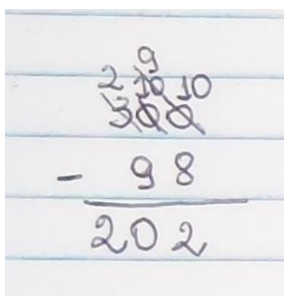 9
2 10 10
300
- 98
202